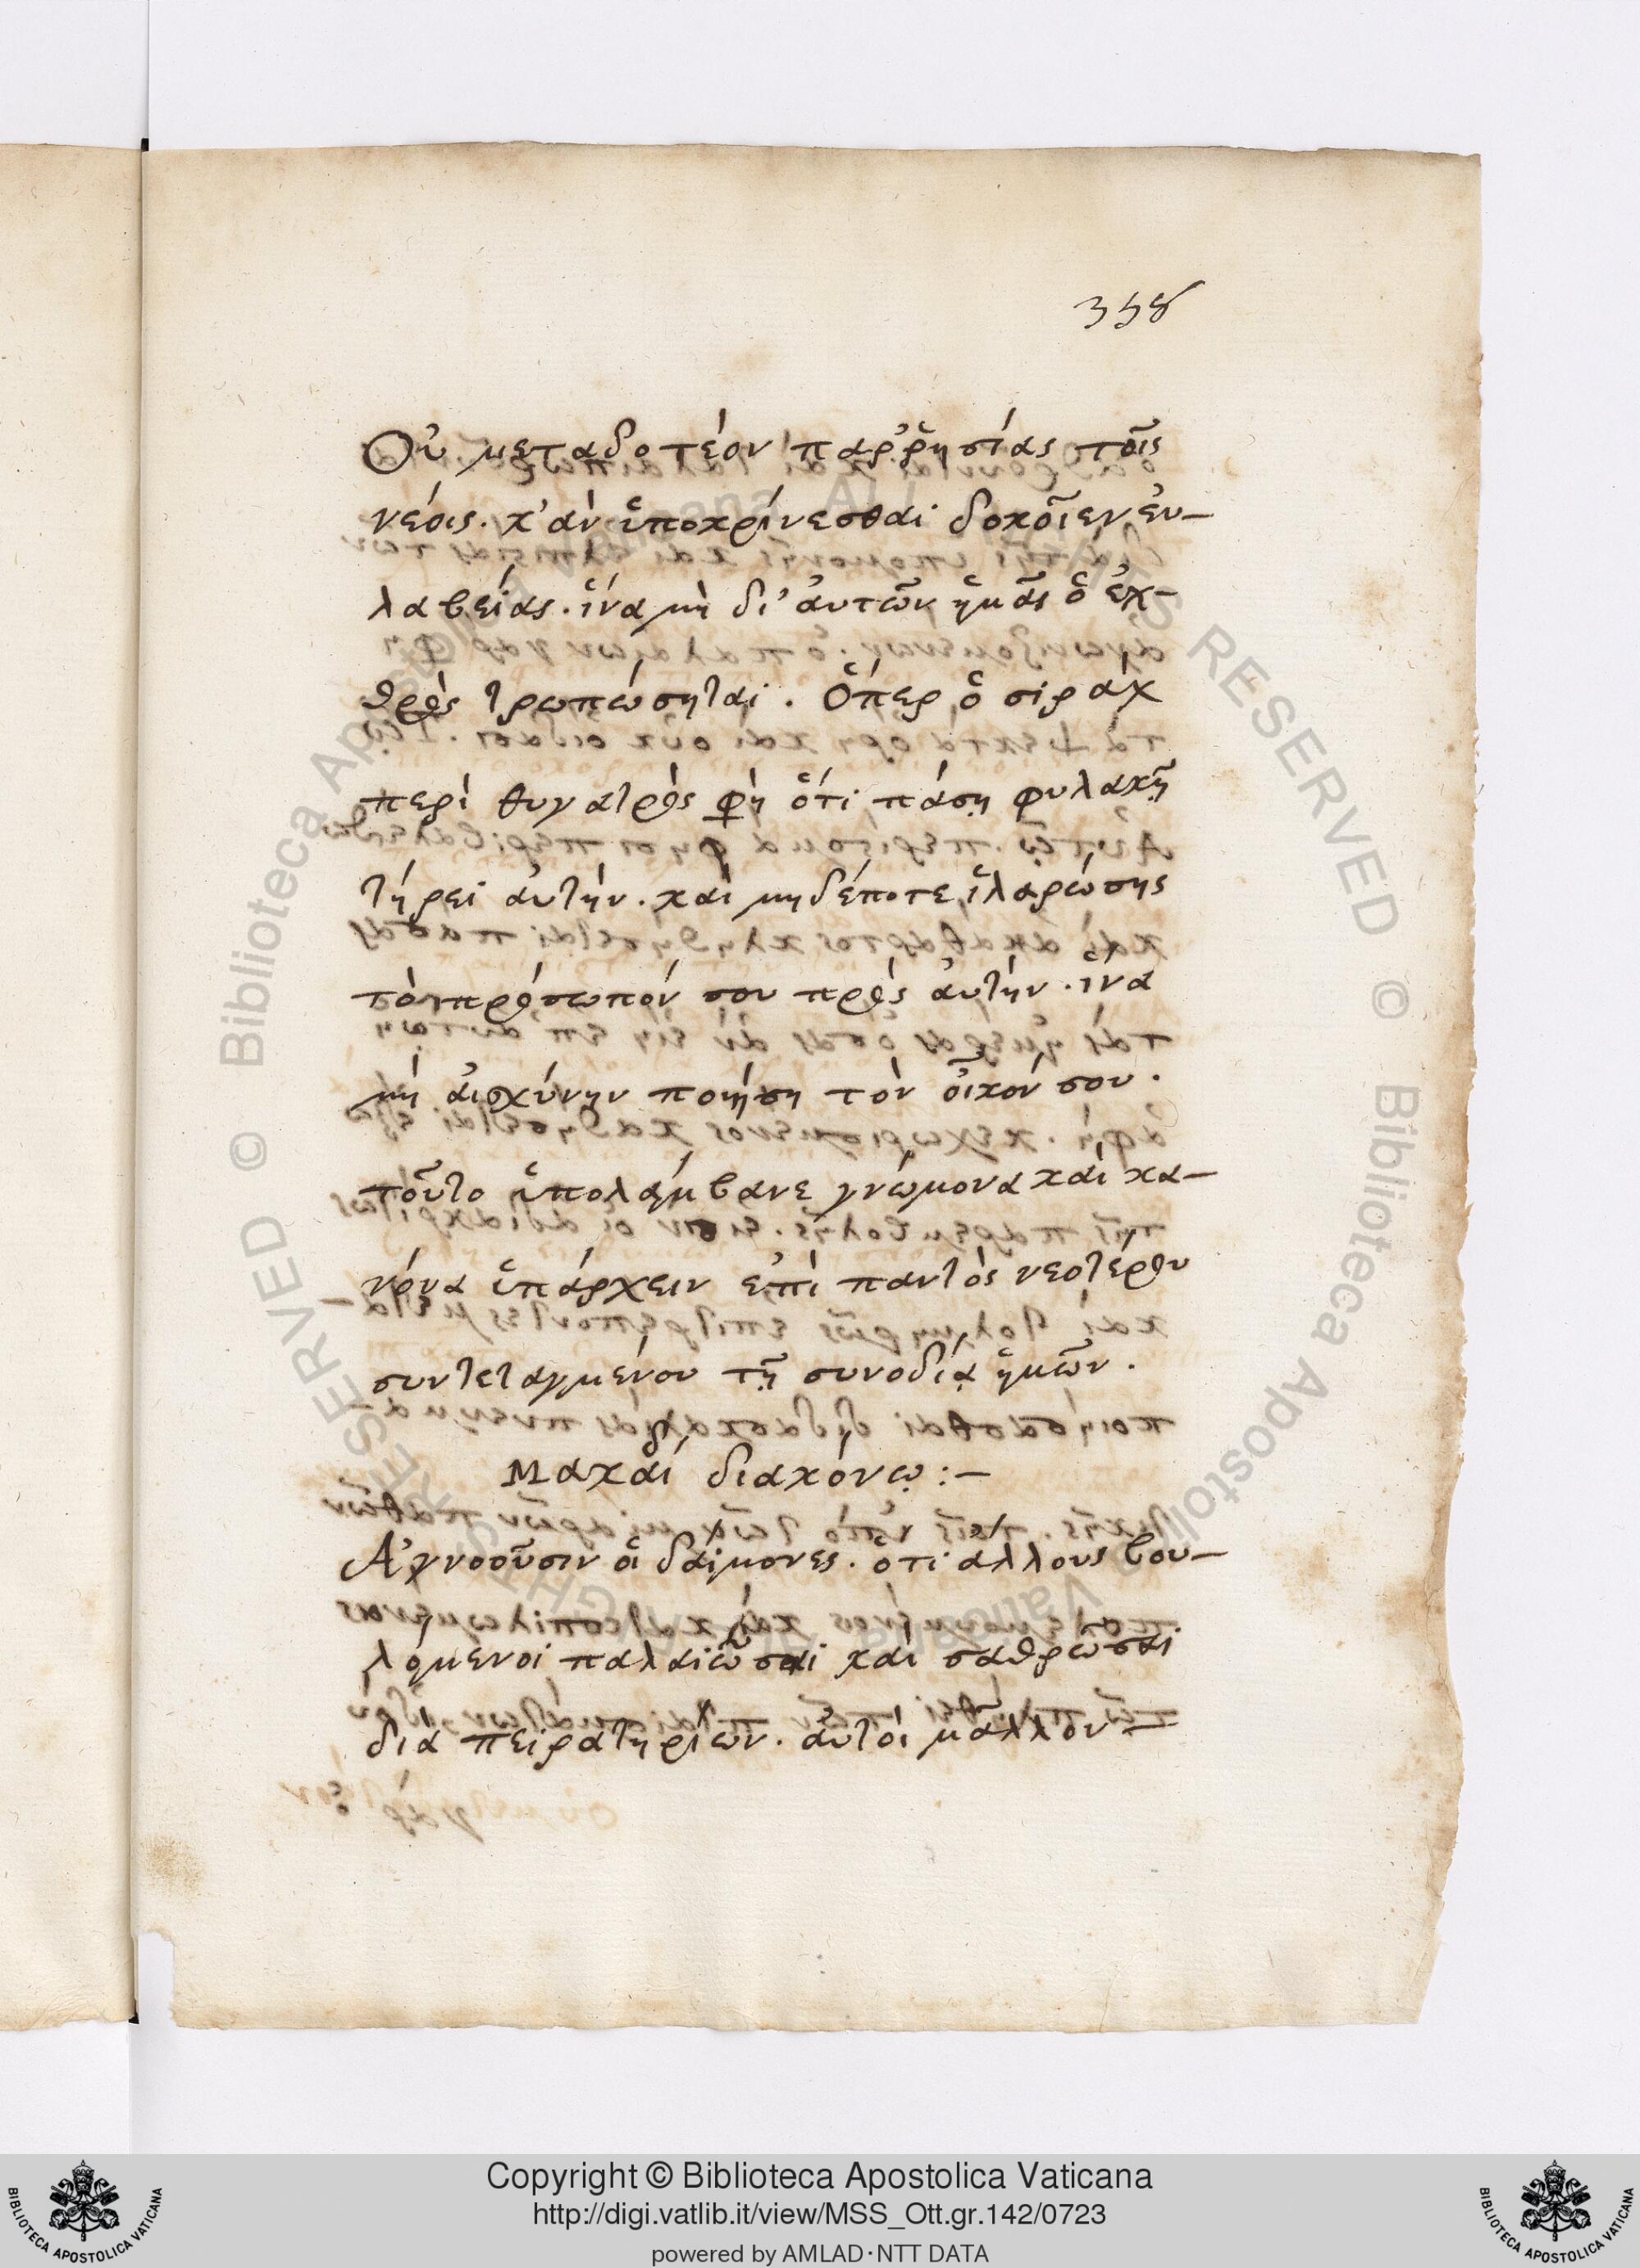 358
Οὐ μεταδοτέον παῤῥησίας τοῖς
νέοις. κ'ἀν ὑποκρίνεσθαι δοκοῖεν ἐυ-
λαβείας. ἵνα μὴ δι' ἀυτῶν ἡμᾶς ὁ ἐχ-
θρὸς τρωπώσηται. Ὅπερ ὁ σιρὰχ
περὶ θυγατρὸς φη ὅτι πάσῃ φυλακῇ
τήρει ἀυτήν. καὶ μηδέποτε ἱλαρώσης
τὸ πρόσωπόν σου πρὸς ἀυτήν. ἵνα
μὴ ἀισχύνην ποιήση τὸν οἶκόν σου.
τοῦτο ὑπολάμβανε γνώμονα καὶ κα-
νόνα ὑπάρχειν ἐπὶ παντὸς νεοτέρου
συντεταγμένου τῇ συνοδίᾳ ἡμῶν.
Μακαδί διακόνῳ:-
Ἀγνοοῦσιν ὁι δαίμονες. ὅτι ἄλλους βου-
λόμενοι παλαιῶσαι καὶ σαθρῶσαι
διὰ πειρατηρίων. ἀυτοὶ μᾶλλον-
Copyright © Biblioteca Apostolica Vaticana
http://digi.vatlib.it/view/MSS_Ott.gr.142/0723
powered by AMLAD·NTT DATA
BIBLIOTECA APOSTOLICA VATICANA
BIBLIOTECA APOSTOLICA VATICANA